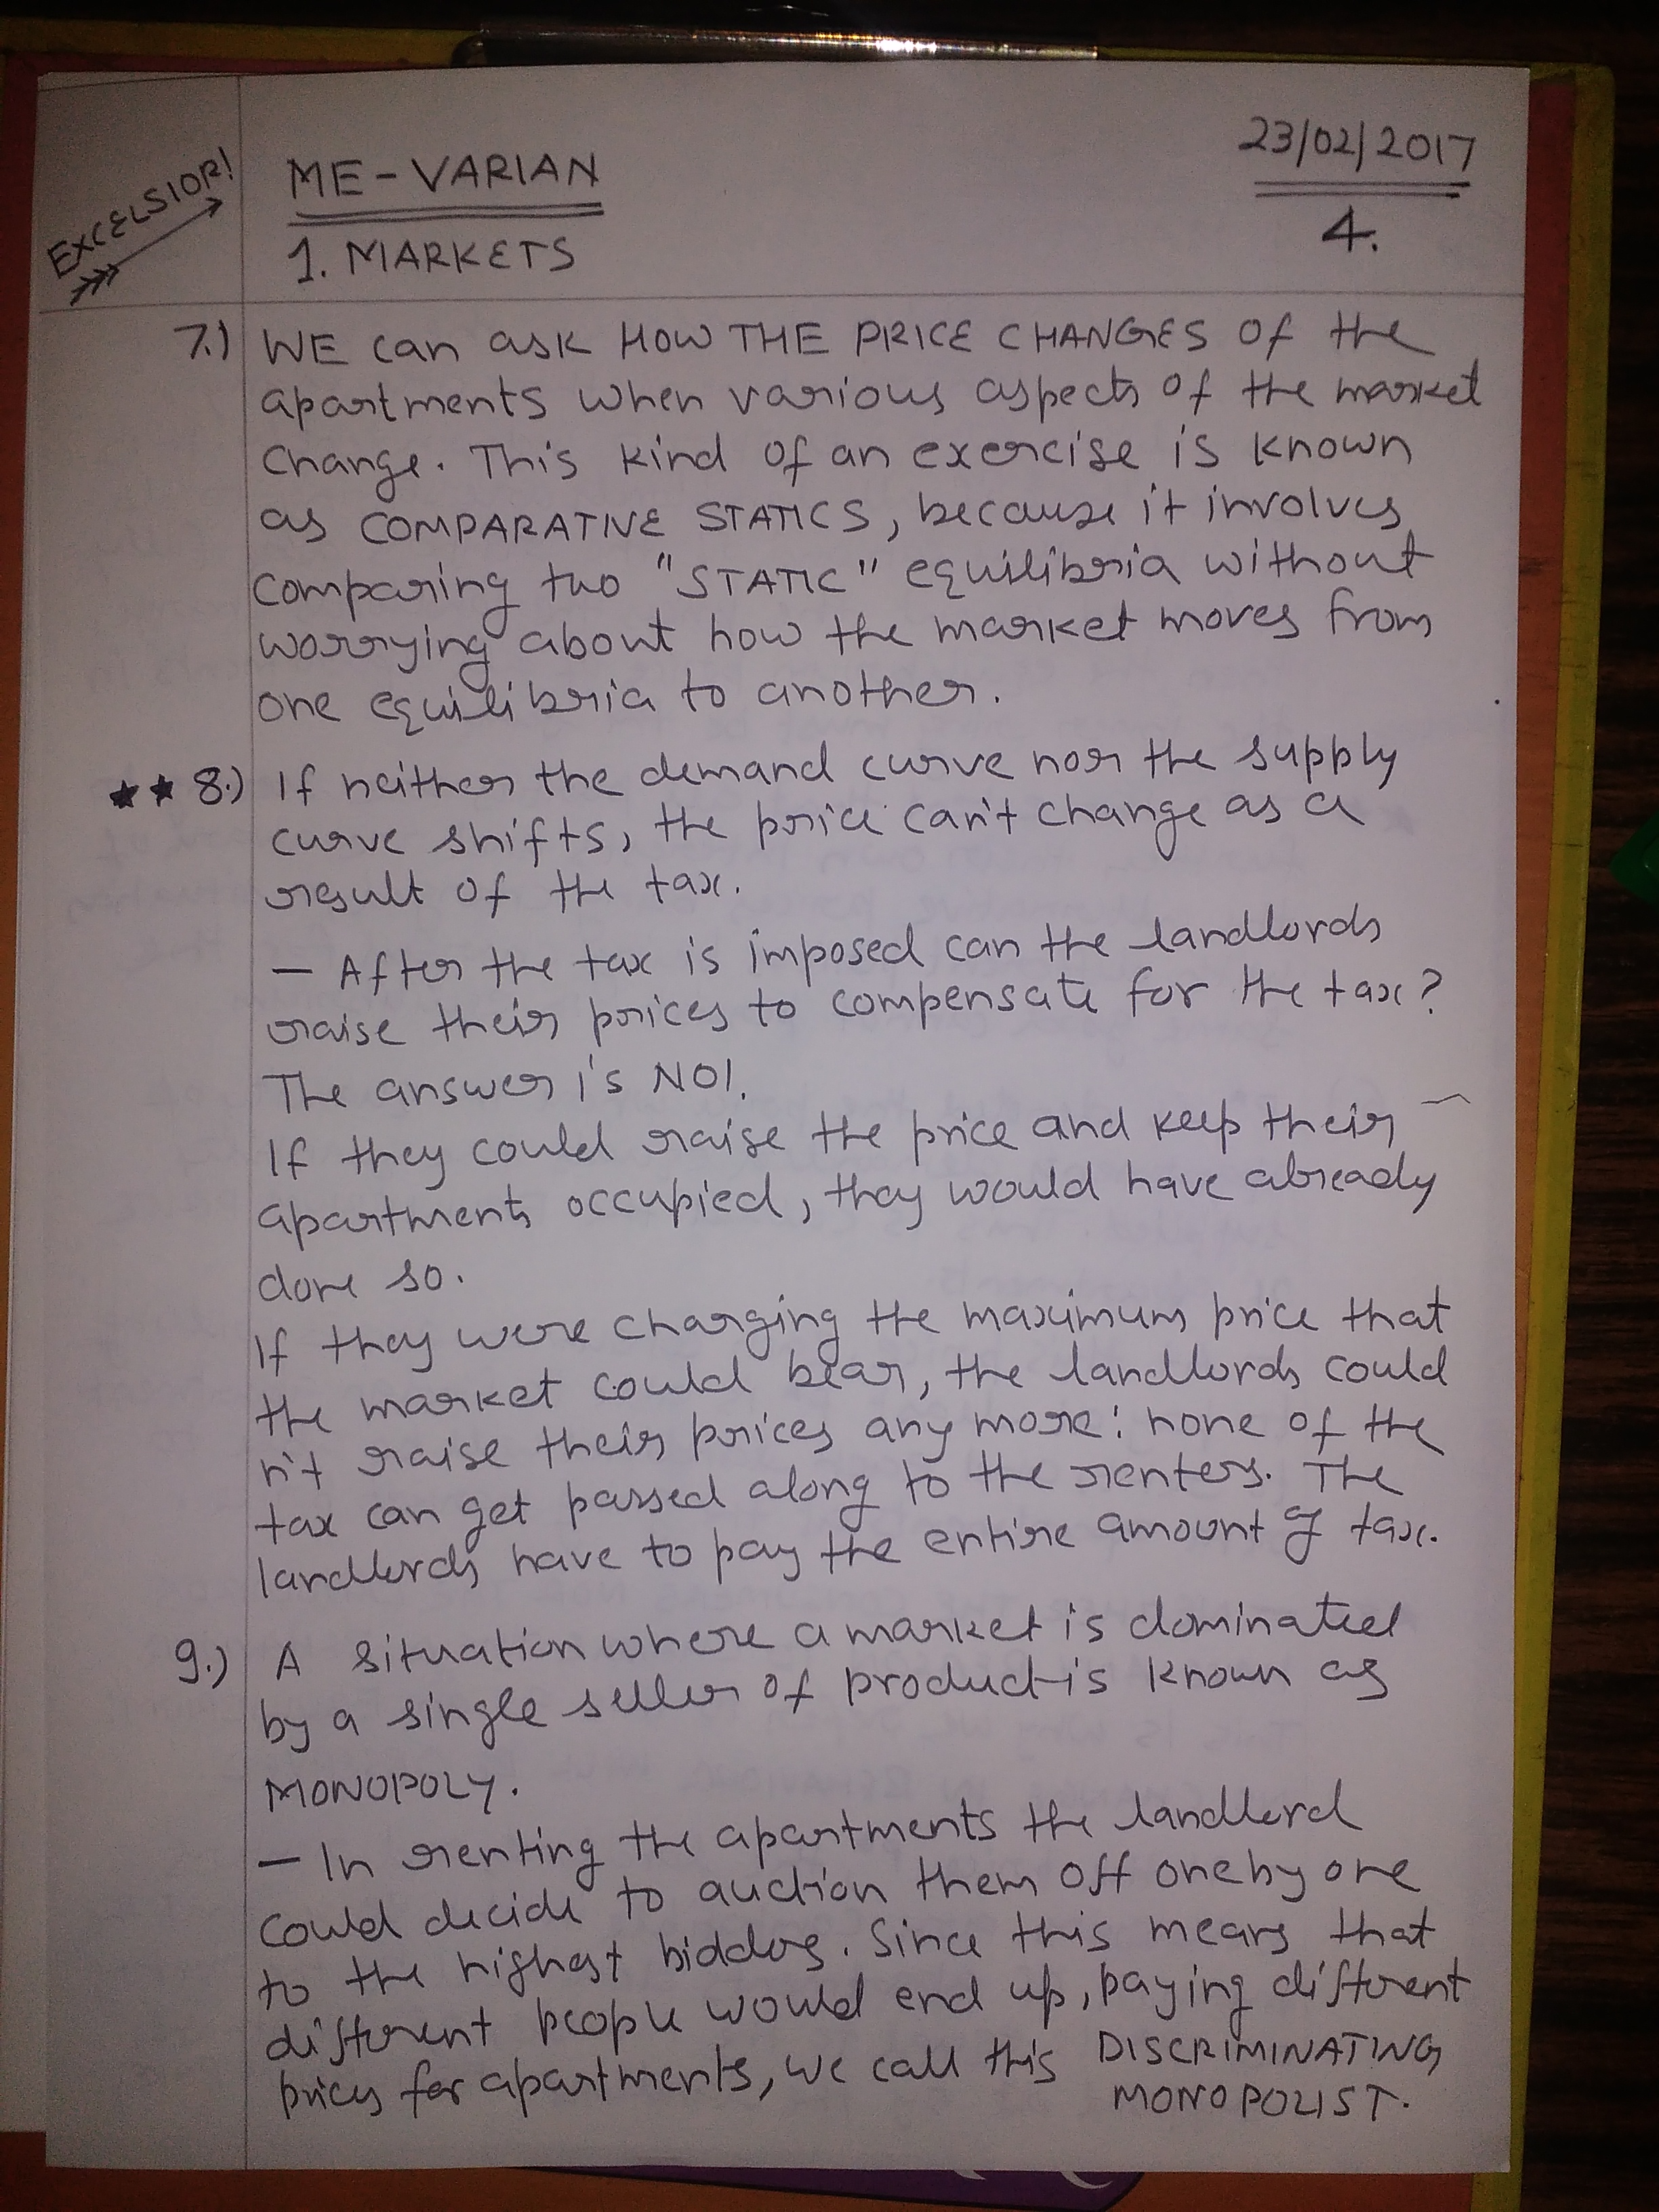 EXCELSIOR!
ME-VARIAN
1. MARKETS
23/02/2017
4.
7.) WE can ask HOW THE PRICE CHANGES of the
apartments when various aspects of the market
change. This kind of an exercise is known
as COMPARATIVE STATICS, because it involves
comparing two "STATIC" equilibria without
worrying about how the market moves from
one equilibria to another.
★★ 8.) If neither the demand curve nor the supply
curve shifts, the price can't change as a
result of the tax.
— After the tax is imposed can the landlords
raise their prices to compensate for the tax?
The answer is NO!.
If they could raise the price and keep their
apartments occupied, they would have already
done so.
If they were charging the maximum price that
the market could bear, the landlords could
n't raise their prices any more: none of the
tax can get passed along to the renters. The
landlords have to pay the entire amount of tax.
9.) A situation where a market is dominated
by a single seller of product is known as
MONOPOLY.
— In renting the apartments the landlord
could decide to auction them off one by one
to the highest bidders. Since this means that
different people would end up, paying different
prices for apartments, we call this DISCRIMINATING
MONOPOLIST.